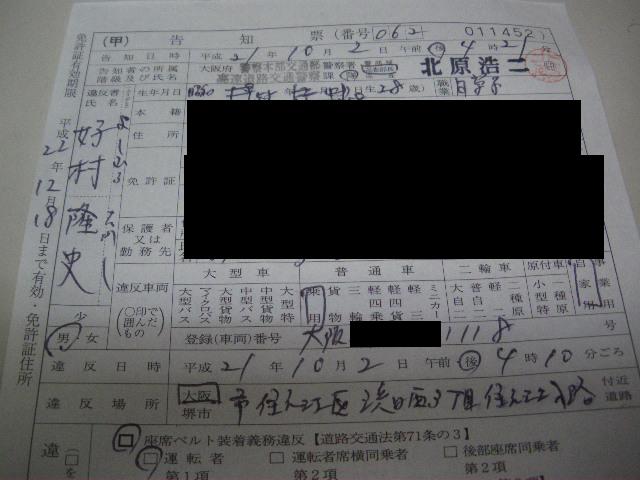 (甲) 告知票 (番号 062 ) 011452
告知日時 平成 21年 10月 2日 午前 後 4時 21
告知者の所属 階級及び氏名 大阪府 警察本部交通部 警察署 高速道路交通警察 課 北原浩二
違反者 氏名 生年月日 昭和 日生 28歳) 職業 自営業
好村 隆史
本籍
住所
免許証
保護者 又は 勤務先
免許証有効期限 平成22年12月18日まで有効・免許証住所
違反車両 (○印で囲んだもの) 大型車 普通車 二輪車 原付車 自家用 事業用
大型バス マイクロバス 大型貨物 中型バス 中型貨物 大型特 乗用 貨物 軽四 軽四貨 軽三 ミニカー 大自二 普自二 二種原 小型特 一種原
少 男・女
登録(車両)番号 大阪 1118 号
違反日時 平成 21年 10月 2日 午前 後 4時 10分ごろ
違反場所 大阪 堺市 市住之江区 浜口西3丁目住之江入路 付近 道路
違 座席ベルト装着義務違反【道路交通法第71条の3】
□を □運転者 □運転者席横同乗者 □後部座席同乗者
第1項 第2項 第2項